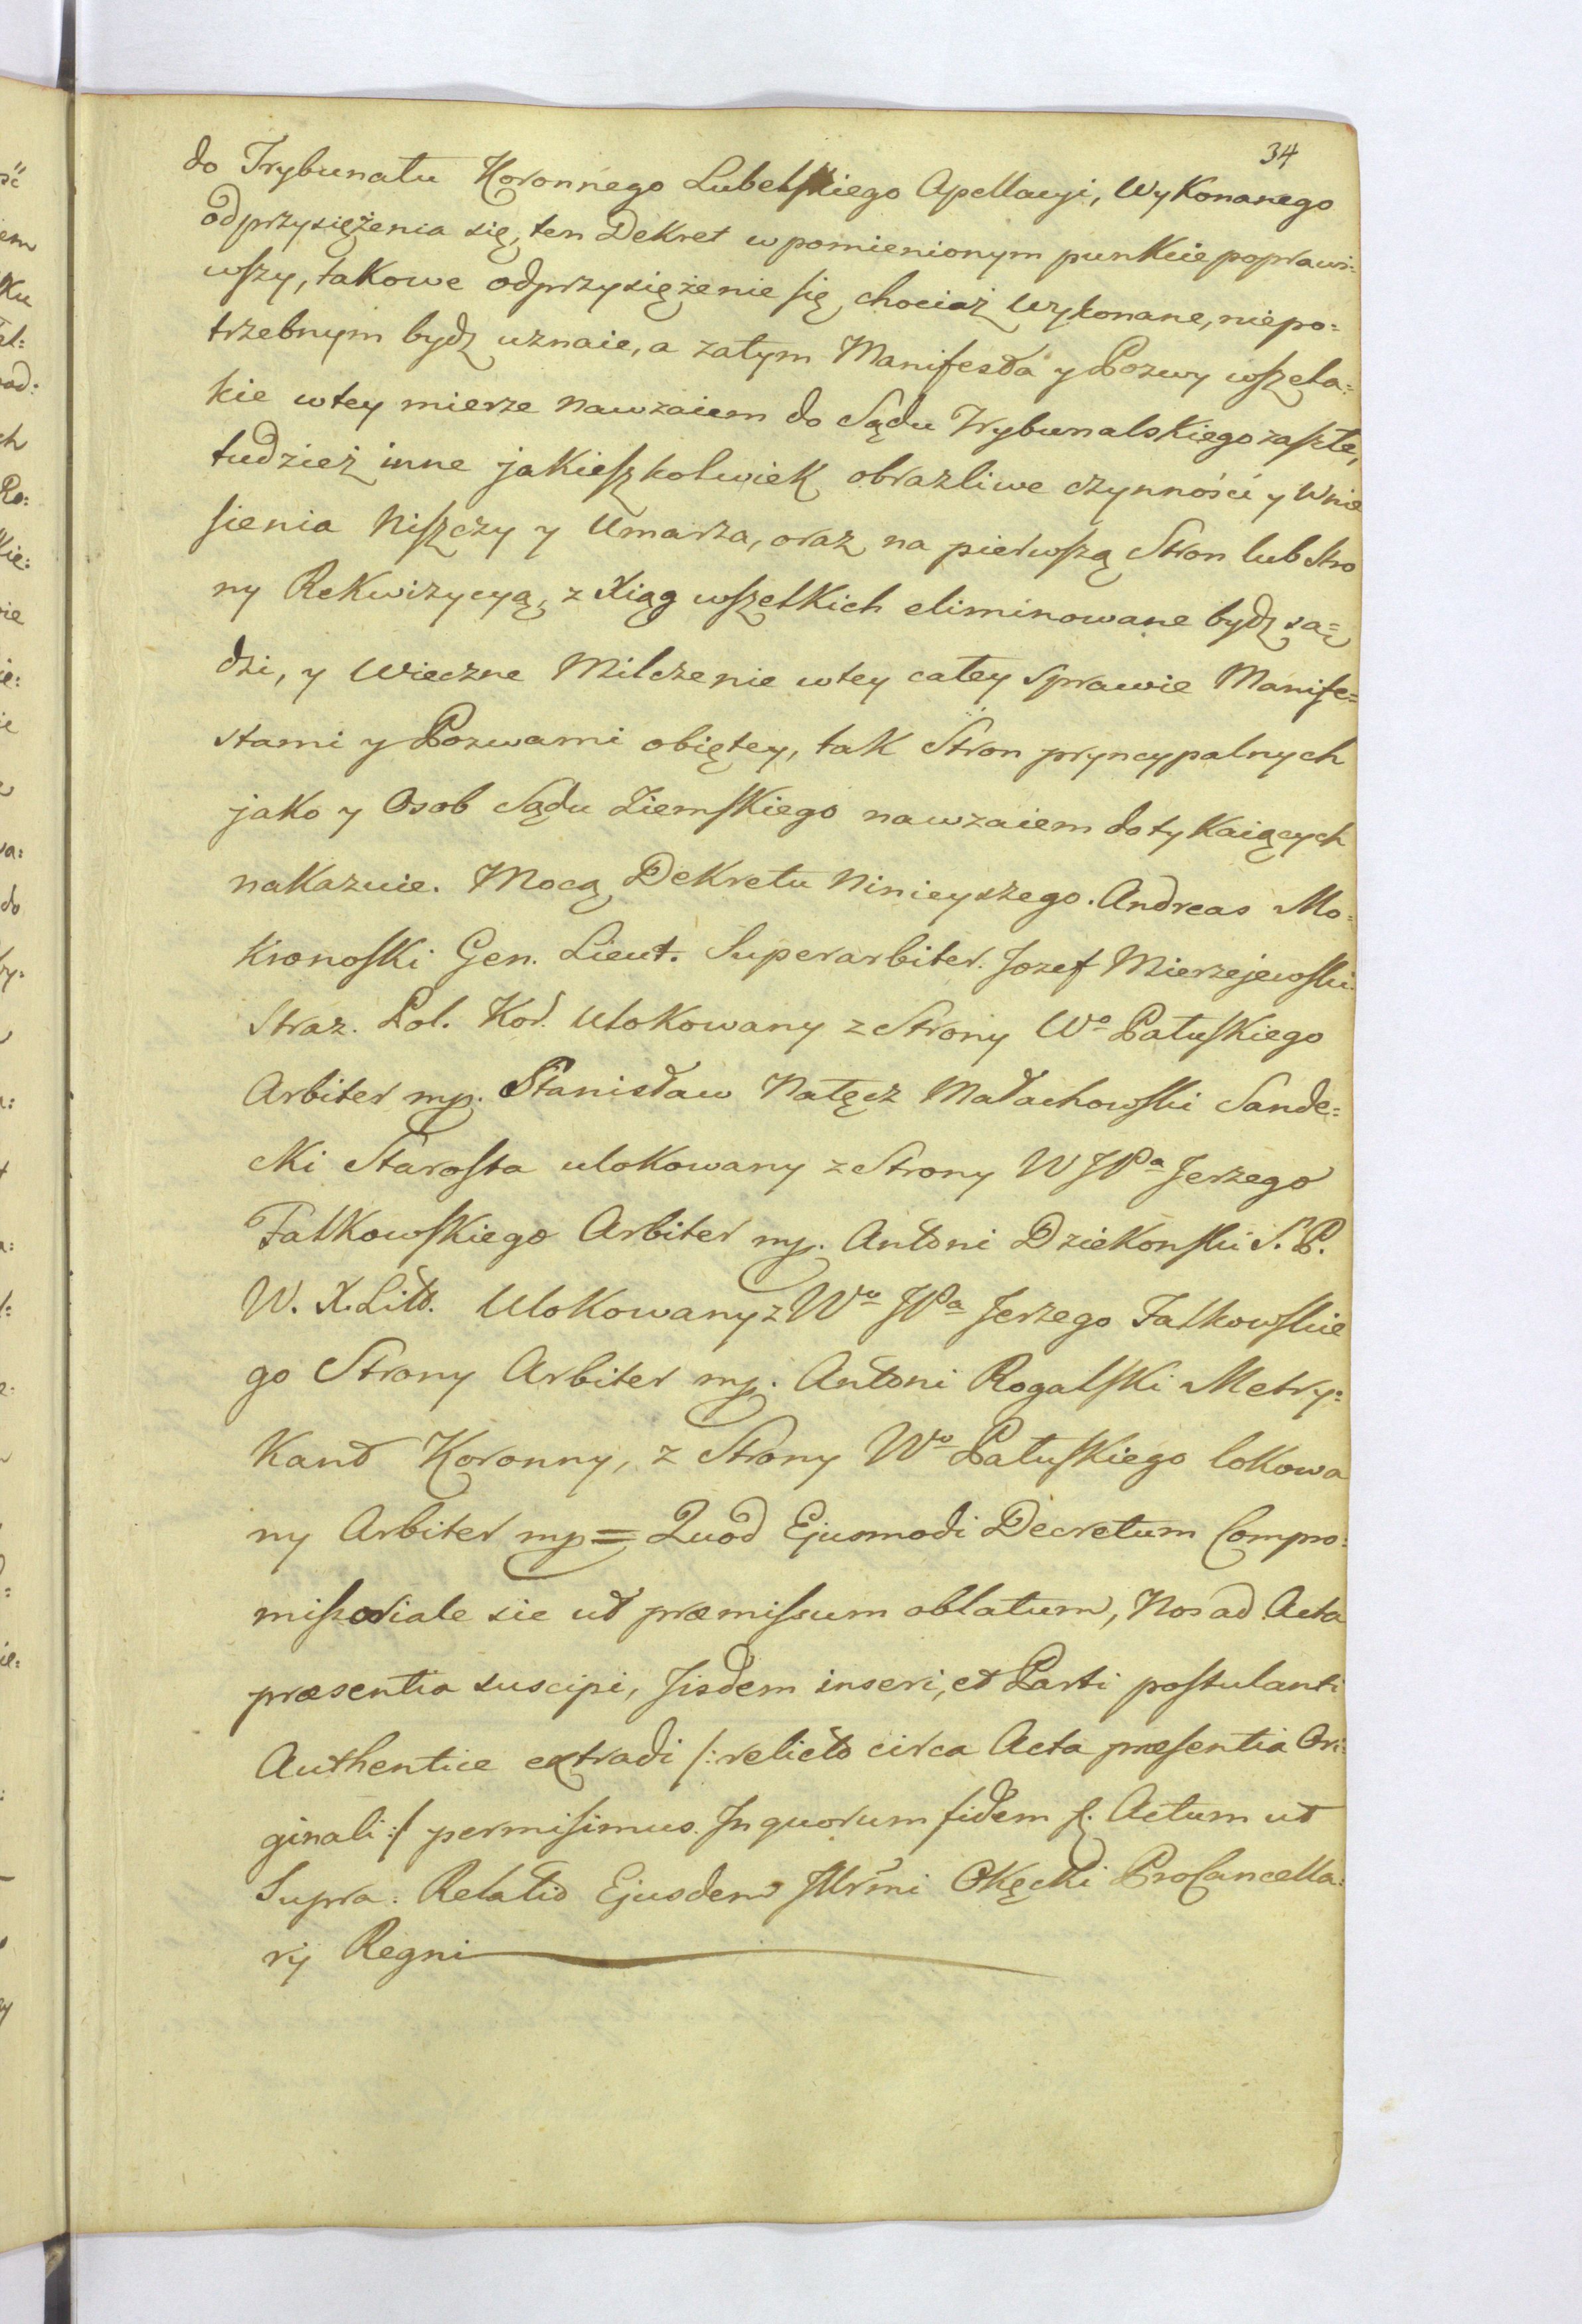 34
do Trybunału Koronnego Lubelskiego Apellacyi, Wykonanego
odprzysiężenia się, ten Dekret w pomienionym punkcie poprawi:
wszy, takowe odprzysiężenie się, chociaż wykonane, niepo:
trzebnym bydz uznaie, a zatym Manifesta y Pozwy wszela:
kie w tey mierze nawzaiem do Sądu Trybunalskiego zaszłe,
tudzież inne jakieszkolwiek obrazliwe czynności y Wnie
sienia Niszczy y Umarza, oraz na pierwszą Stron lub Stro
ny Rekwizycyą, z Xiąg wszelkich eliminowane bydz są=
dzi, y Wieczne Milczenie w tey całey Sprawie Manife=
stami y Pozwami obiętey, tak Stron pryncypalnych
jako y Osob Sądu Ziemskiego nawzaiem dotykaiących
nakazuie. Mocą Dekretu Ninieyszego. Andreas Mo=
kronoski Gen. Lieut. Superarbiter. Jozef Mierzejewski
Straz. Pol. Kor. Ulokowany z Strony Wo Patuskiego
Arbiter mp. Stanisław Nałęcz Małachowski Sande=
cki Starosta ulokowany z Strony W JPa Jerzego
Fałkowskiego Arbiter mp. Antoni Dziekonski S. P.
W. X. Litt. Ulokowany z Wo JPa Jerzego Fałkowskie
go Strony Arbiter mp. Antoni Rogalski Metry:
kant Koronny, z Strony Wo Patuskiego lokowa
ny Arbiter mp = Quod Ejusmodi Decretum Compro:
missoriale sic ut præmissum oblatum, Nos ad Acta
præsentia suscipi, Jisdem inseri, et Parti postulanti
Authentice extradi /: relicto circa Acta præsentia Ori:
ginali :/ permisimus. In quorum fidem &. Actum ut
Supra. Relatio Ejusdem Jllrmi Okęcki ProCancella:
rij Regni